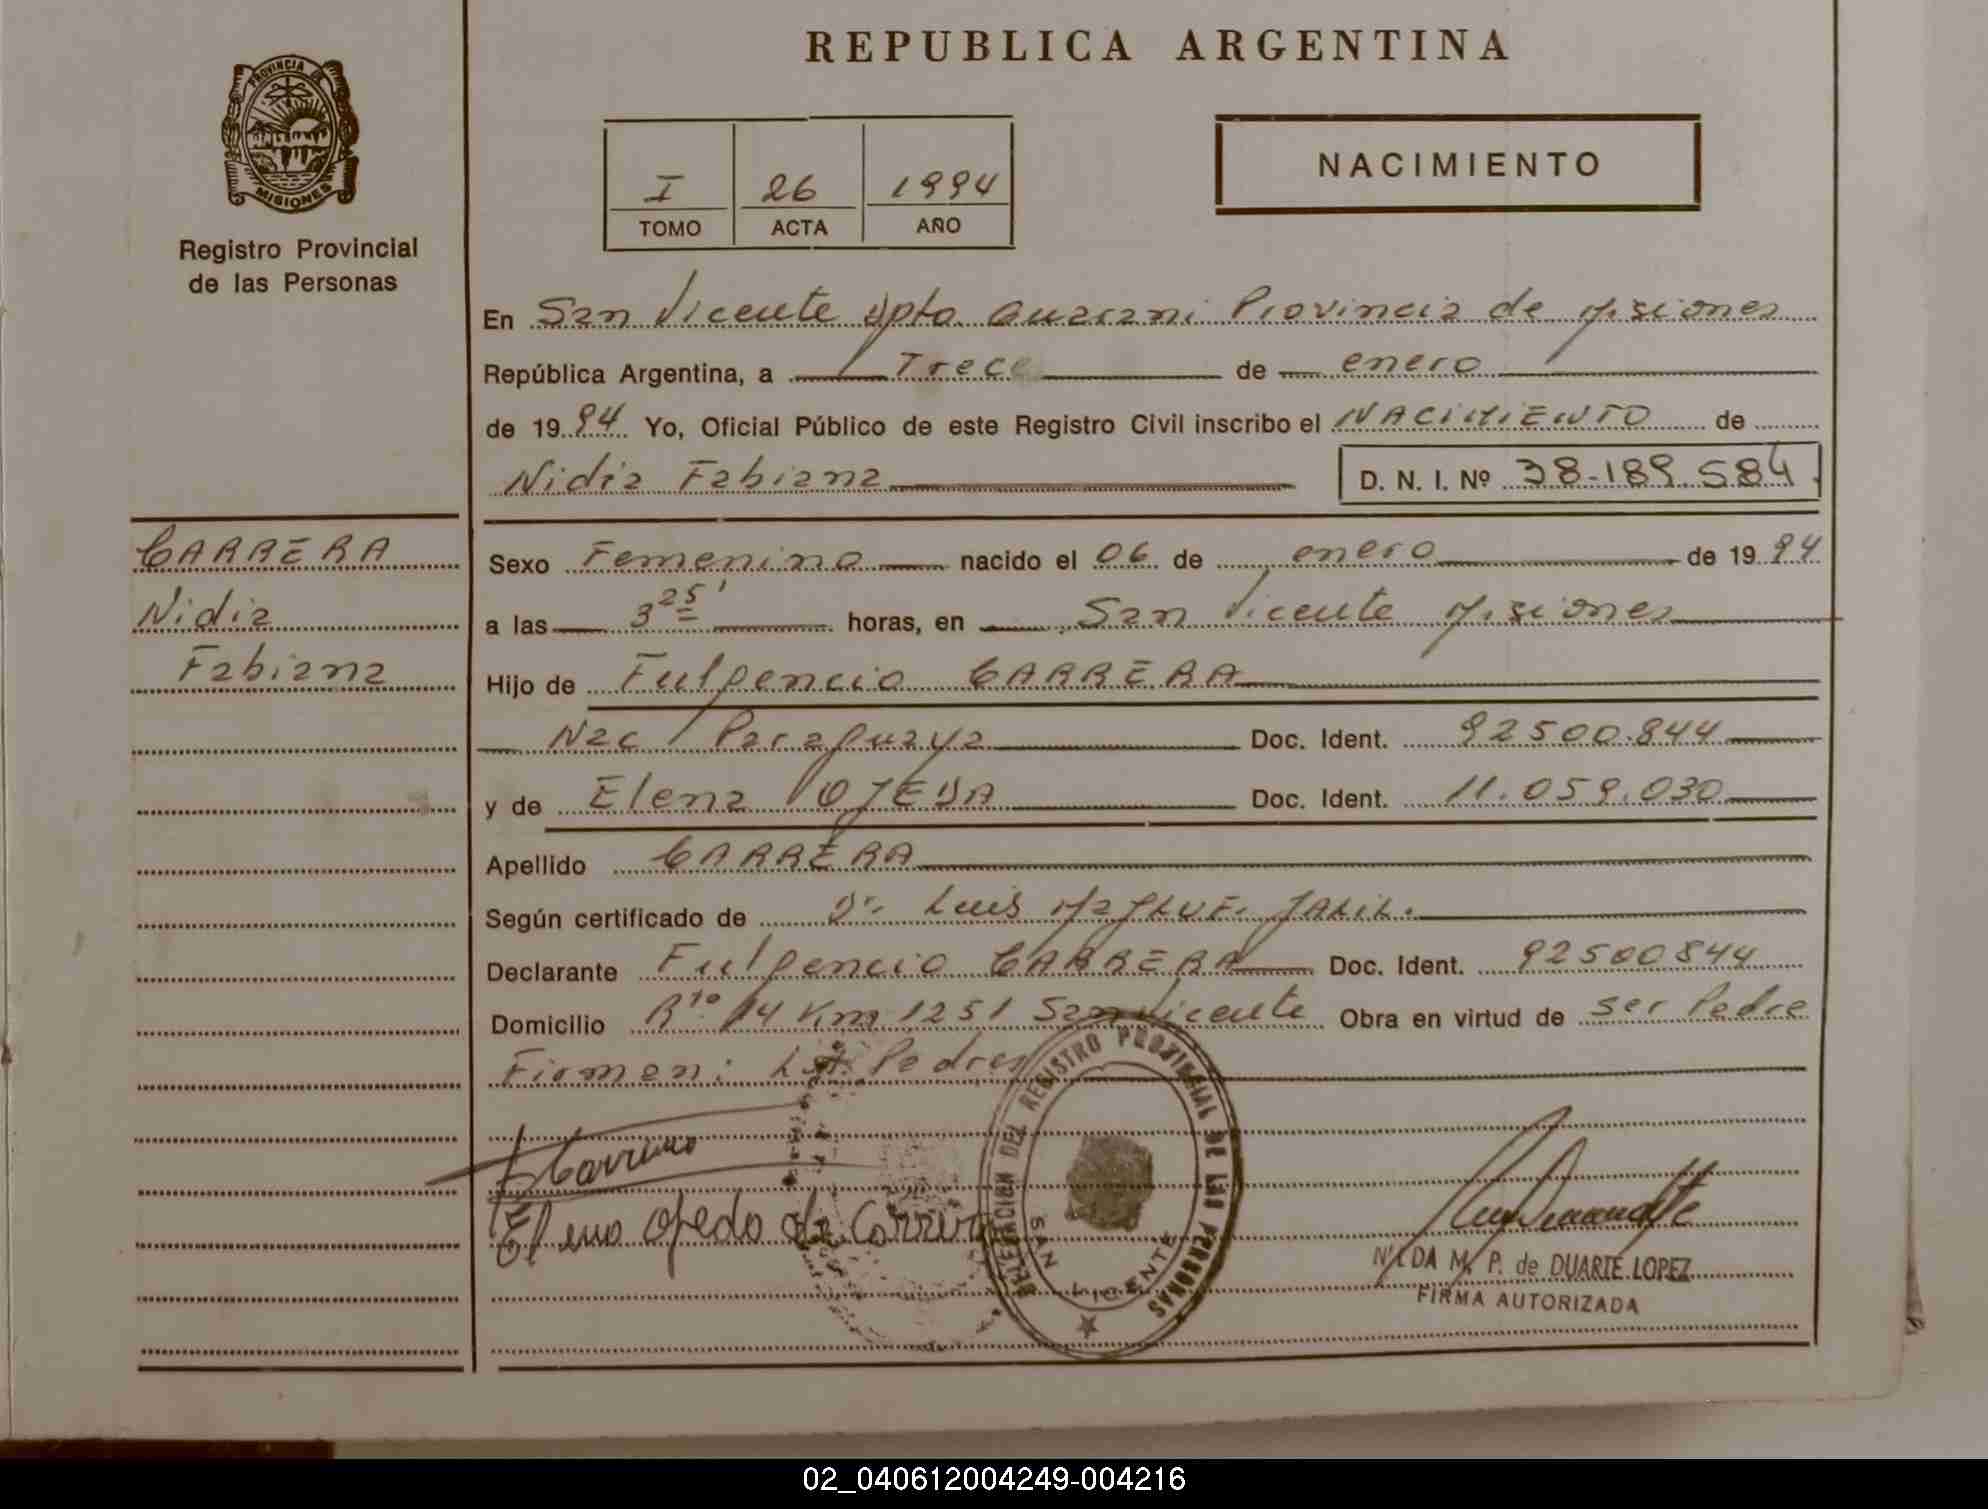 REPUBLICA ARGENTINA
PROVINCIA DE
MISIONES
Registro Provincial
de las Personas
I 26 1994
TOMO ACTA AÑO
NACIMIENTO
En San Vicente Dpto. Guarani Provincia de Misiones
República Argentina, a Trece de enero
de 1994 Yo, Oficial Público de este Registro Civil inscribo el NACIMIENTO de
Nidia Fabiana D. N. I. Nº 38-189.584
CARRERA
Nidia
Fabiana
Sexo Femenino nacido el 06 de enero de 1994
a las 3 25' horas, en San Vicente Misiones
Hijo de Fulgencio CARRERA
Nac Paraguaya Doc. Ident. 92500.844
y de Elena OJEDA Doc. Ident. 11.059.030
Apellido CARRERA
Según certificado de Dr. Luis JALIL.
Declarante Fulgencio CARRERA Doc. Ident. 92500844
Domicilio Rta. 14 Km 1251 San Vicente Obra en virtud de ser Padre
Firman: Los Padres
Carrera
Elena Ojeda de Carrera
DELEGACION DEL REGISTRO PROVINCIAL DE LAS PERSONAS
SAN VICENTE
NILDA M. P. de DUARTE LOPEZ
FIRMA AUTORIZADA
02_040612004249-004216